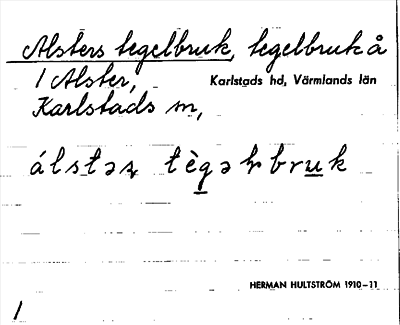 Alsters tegelbruk, tegelbruk å
1 Alster,
Karlstads hd, Värmlands län
Karlstads m,
álstəꝛ tègəɫbruk
HERMAN HULTSTRÖM 1910–11
1